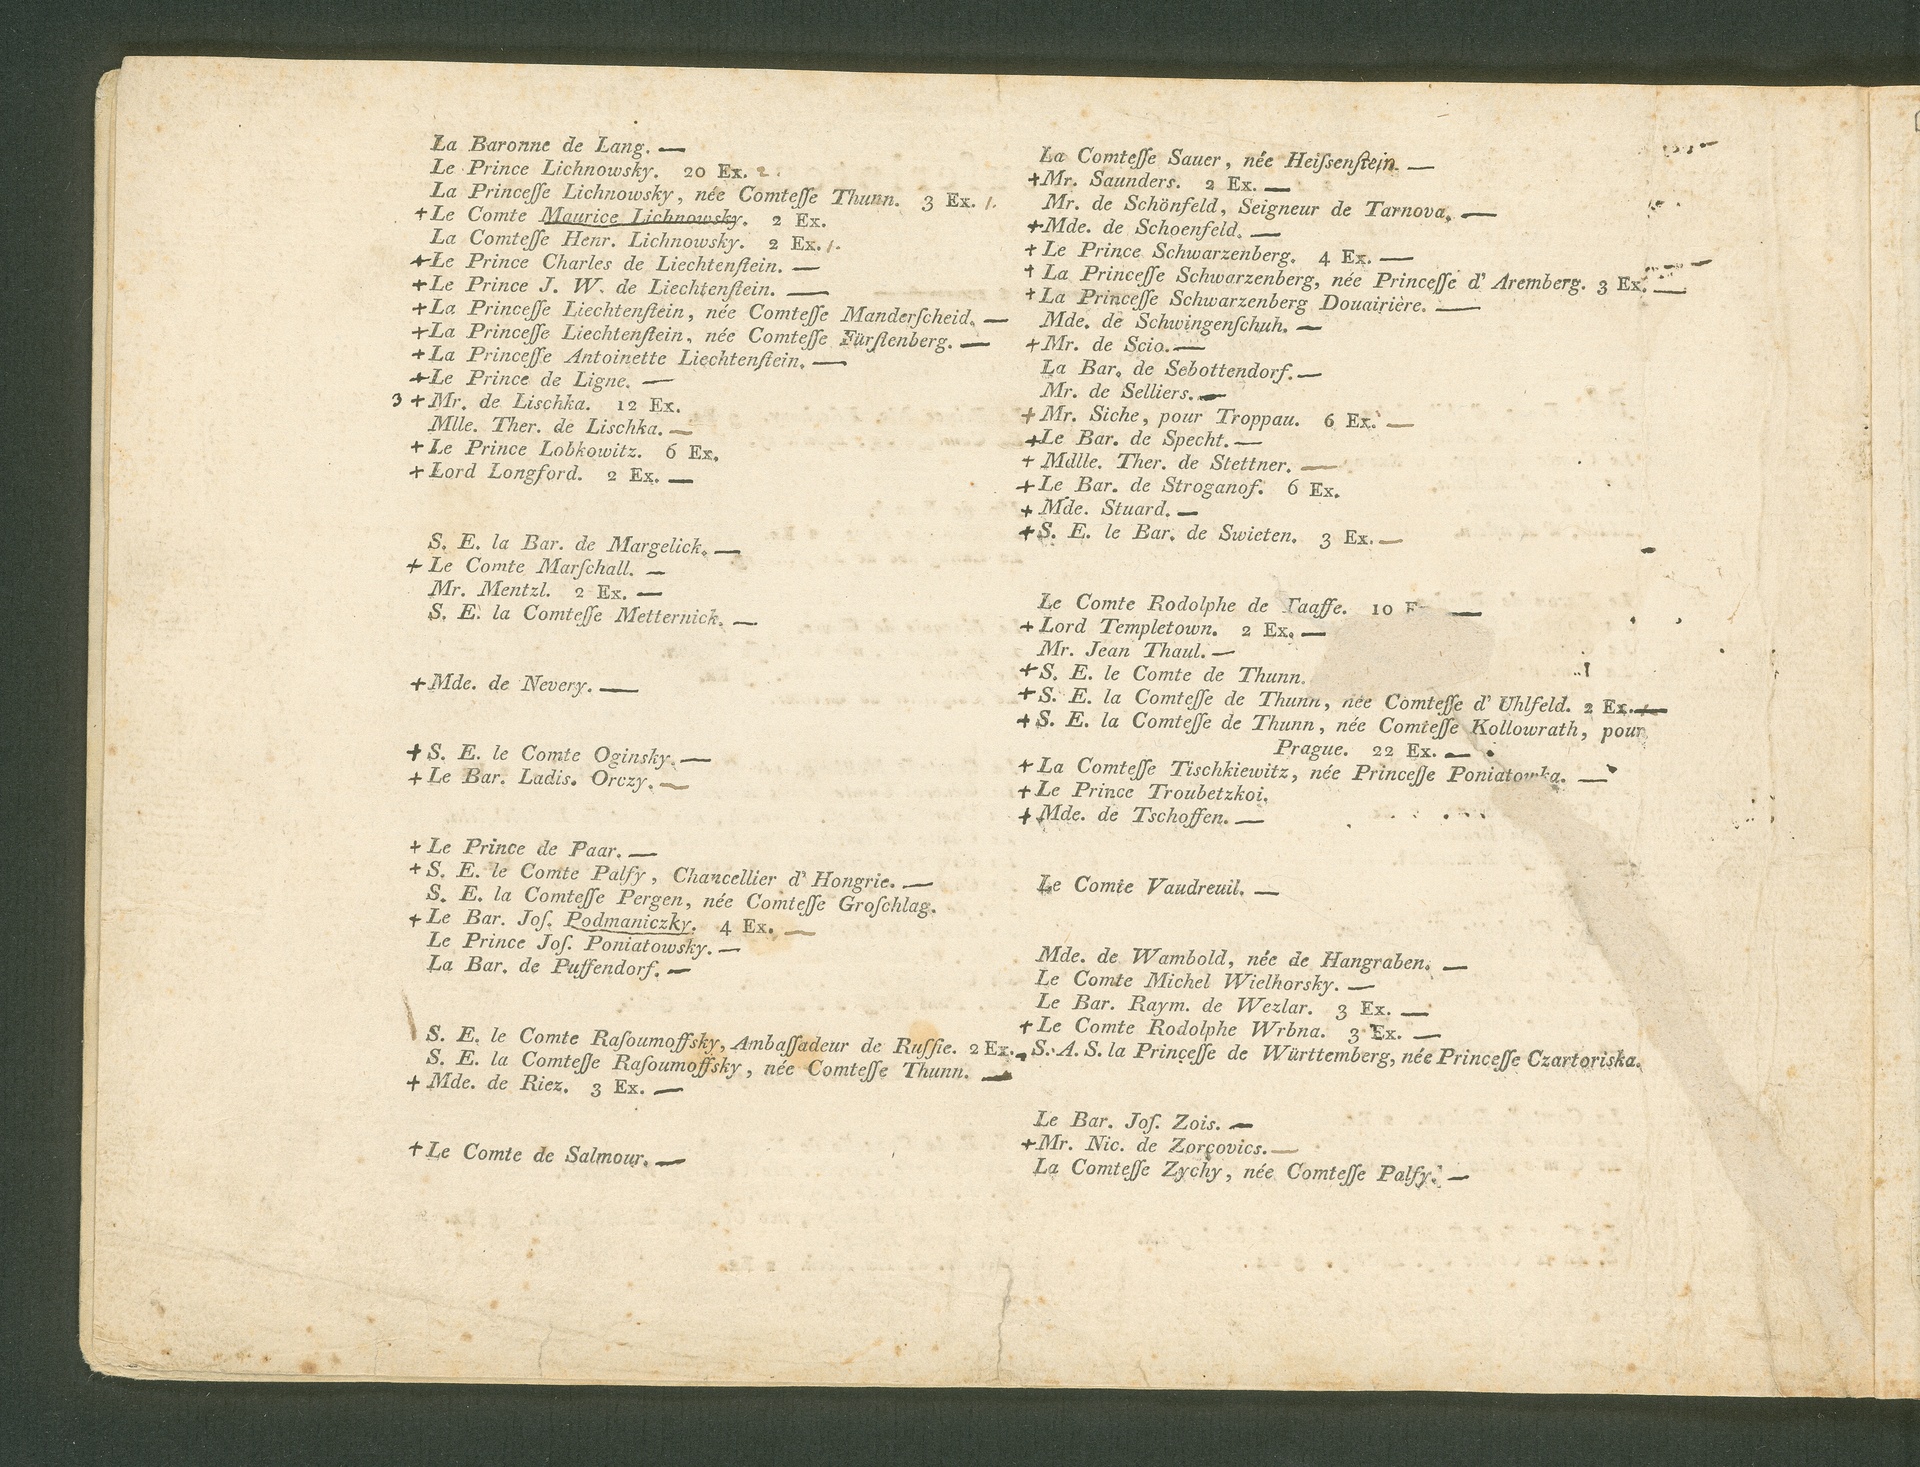 La Baronne de Lang. —
Le Prince Lichnowsky. 20 Ex. 2.
La Princeſſe Lichnowsky, née Comteſſe Thunn. 3 Ex. 1.
+Le Comte Maurice Lichnowsky. 2 Ex.
La Comteſſe Henr. Lichnowsky. 2 Ex. 1.
+Le Prince Charles de Liechtenſtein. —
+Le Prince J. W. de Liechtenſtein. —
+La Princeſſe Liechtenſtein, née Comteſſe Manderſcheid. —
+La Princeſſe Liechtenſtein, née Comteſſe Fürſtenberg. —
+La Princeſſe Antoinette Liechtenſtein. —
+Le Prince de Ligne. —
3 +Mr. de Lischka. 12 Ex.
Mlle. Ther. de Lischka. —
+Le Prince Lobkowitz. 6 Ex.
+Lord Longford. 2 Ex. —
S. E. la Bar. de Margelick. —
+Le Comte Marſchall. —
Mr. Mentzl. 2 Ex. —
S. E. la Comteſſe Metternick. —
+Mde. de Nevery. —
+S. E. le Comte Oginsky. —
+Le Bar. Ladis. Orczy. —
+Le Prince de Paar. —
+S. E. le Comte Palfy, Chancellier d' Hongrie. —
S. E. la Comteſſe Pergen, née Comteſſe Groſchlag.
+Le Bar. Joſ. Podmaniczky. 4 Ex. —
Le Prince Joſ. Poniatowsky. —
La Bar. de Puffendorf. —
S. E. le Comte Raſoumoffsky, Ambaſſadeur de Ruſſie. 2 Ex. —
S. E. la Comteſſe Raſoumoffsky, née Comteſſe Thunn. —
+Mde. de Riez. 3 Ex. —
+Le Comte de Salmour. —
La Comteſſe Sauer, née Heiſsenſtein. —
+Mr. Saunders. 2 Ex. —
Mr. de Schönfeld, Seigneur de Tarnova. —
+Mde. de Schoenfeld. —
+Le Prince Schwarzenberg. 4 Ex. —
+La Princeſſe Schwarzenberg, née Princeſſe d' Aremberg. 3 Ex. —
+La Princeſſe Schwarzenberg Douairière. —
Mde. de Schwingenſchuh. —
+Mr. de Scio. —
La Bar. de Sebottendorf. —
Mr. de Selliers. —
+Mr. Siche, pour Troppau. 6 Ex. —
+Le Bar. de Specht. —
+Mdlle. Ther. de Stettner. —
+Le Bar. de Stroganof. 6 Ex.
+Mde. Stuard. —
+S. E. le Bar. de Swieten. 3 Ex. —
Le Comte Rodolphe de Taaffe. 10 —
+Lord Templetown. 2 Ex. —
Mr. Jean Thaul. —
+S. E. le Comte de Thunn.
+S. E. la Comteſſe de Thunn, née Comteſſe d' Uhlfeld. 2 Ex. —
+S. E. la Comteſſe de Thunn, née Comteſſe Kollowrath, pour
Prague. 22 Ex. —
+La Comteſſe Tischkiewitz, née Princeſſe Poniatowka. —
+Le Prince Troubetzkoi.
+Mde. de Tschoffen. —
Le Comte Vaudreuil. —
Mde. de Wambold, née de Hangraben. —
Le Comte Michel Wielhorsky. —
Le Bar. Raym. de Wezlar. 3 Ex. —
+Le Comte Rodolphe Wrbna. 3 Ex. —
S. A. S. la Princeſſe de Württemberg, née Princeſſe Czartoriska.
Le Bar. Joſ. Zois. —
+Mr. Nic. de Zorcovics. —
La Comteſſe Zychy, née Comteſſe Palfy. —